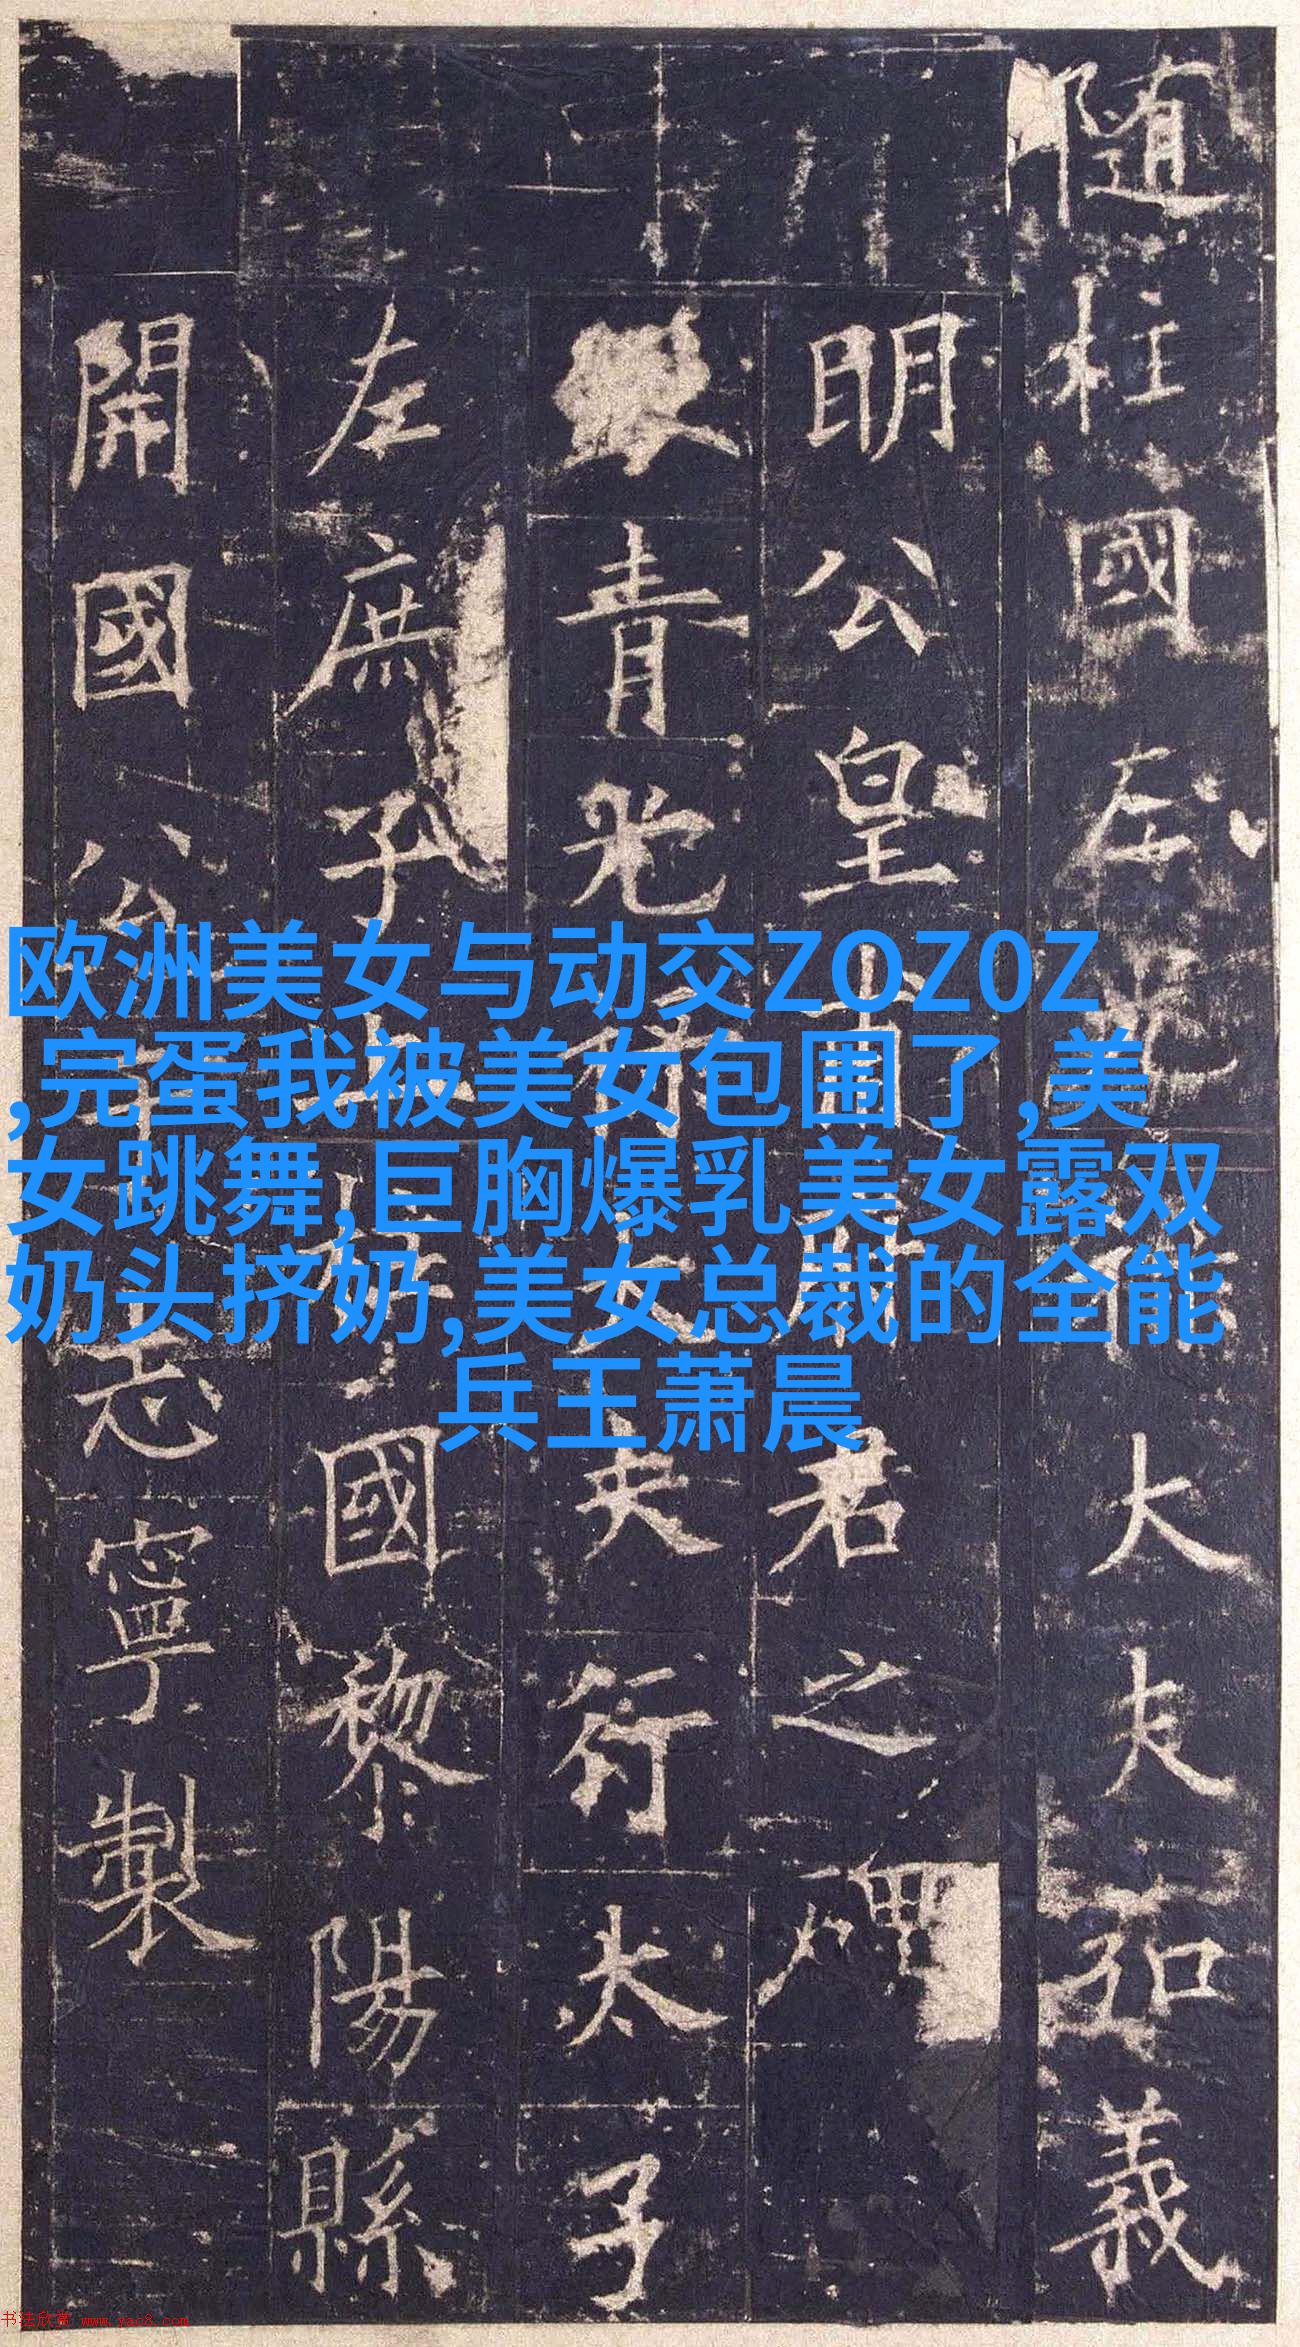 隨柱國左光祿大夫弘義
明公皇甫府君之碑
青光祿大夫行太子
左庶子上柱國黎陽縣
開國公于志寧製
欧洲美女与动交ZOZ0Z
,完蛋我被美女包围了,美
女跳舞,巨胸爆乳美女露双
奶头挤奶,美女总裁的全能
兵王萧晨
书法欣赏 www.yac8.com